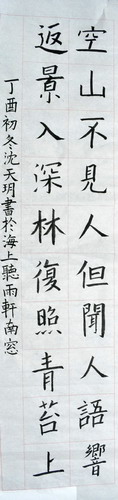 空山不見人但聞人語響
返景入深林復照青苔上
丁酉初冬沈天玥書於海上聽雨軒南窓